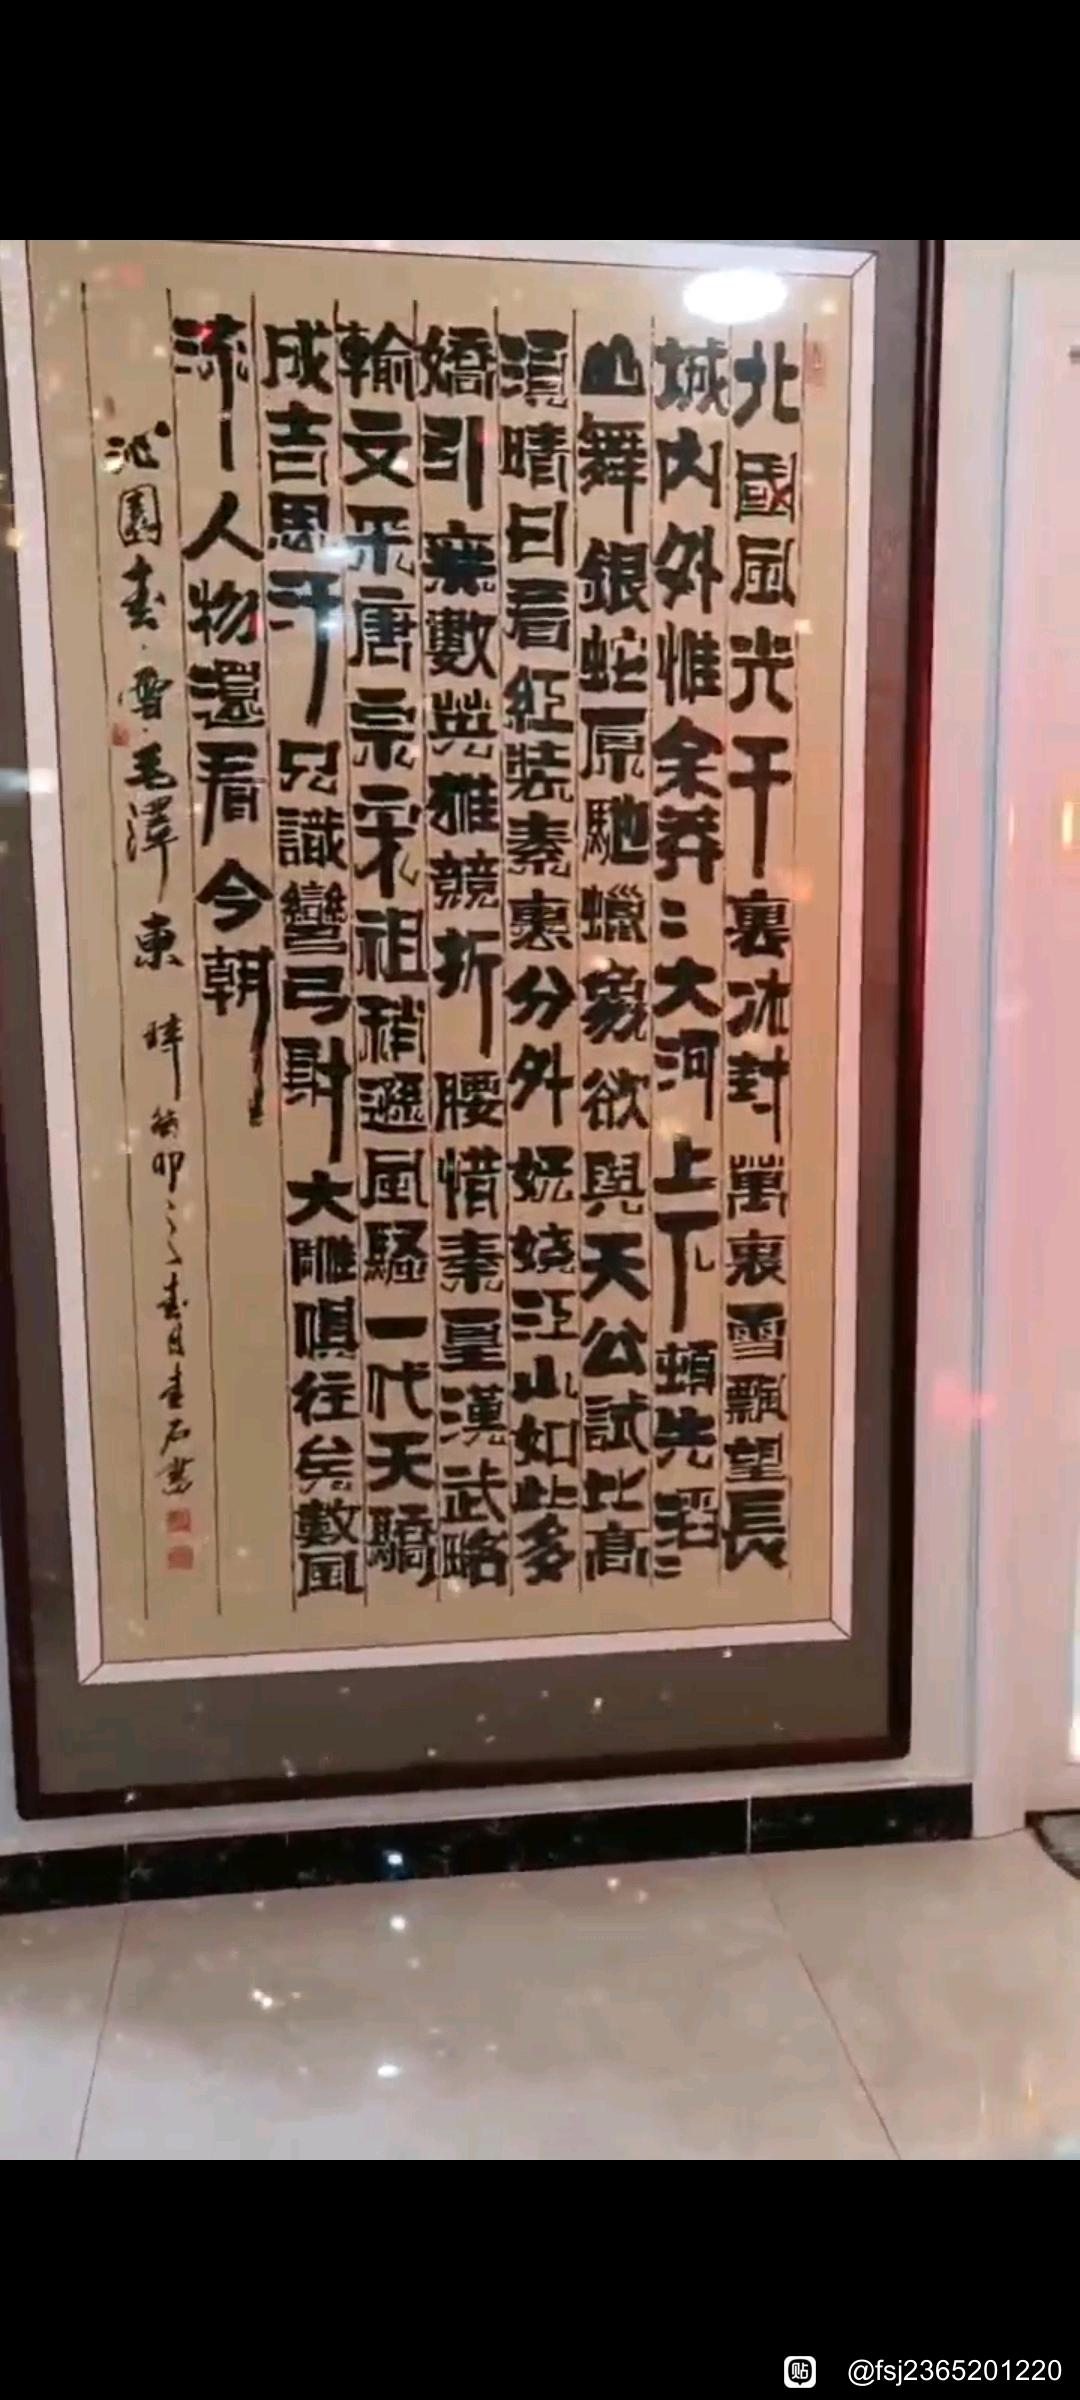 北國風光千裏冰封萬裏雪飄望長
城内外惟余莽⺀大河上下頓失滔⺀
山舞銀蛇原馳蠟象欲與天公試比高
須晴日看紅裝素裹分外妖嬈江山如此多
嬌引無數英雄競折腰惜秦皇漢武略
輸文采唐宗宋祖稍遜風騷一代天驕
成吉思汗只識彎弓射大雕俱往矣數風
流人物還看今朝
沁園春·雪·毛澤東 癸卯之春月 石書
@fsj2365201220